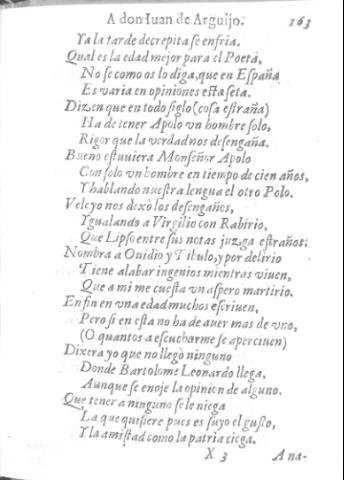 A don Iuan de Arguijo. 163
Ya la tarde decrepita se enfria.
Qual es la edad mejor para el Poeta,
No se como os lo diga, que en España
Es varia en opiniones esta seta.
Dizen que en todo siglo (cosa estraña)
Ha de tener Apolo vn hombre solo,
Rigor que la verdad nos desengaña.
Bueno estuuiera Monseñor Apolo
Con solo vn hombre en tiempo de cien años,
Y hablando nuestra lengua el otro Polo.
Veleyo nos dexò los desengaños,
Ygualando a Virgilio con Rabirio,
Que Lipso entre sus notas juzga estraños:
Nombra a Ouidio y Tibulo, y por delirio
Tiene alabar ingenios mientras viuen,
Que a mi me cuesta vn aspero martirio.
En fin en vna edad muchos escriuen,
Pero si en esta no ha de auer mas de vno,
(O quantos a escucharme se aperciuen)
Dixera yo que no llegò ninguno
Donde Bartolome Leonardo llega,
Aunque se enoje la opinion de alguno.
Que tener a ninguno se le niega
La que quisiere pues es suyo el gusto,
Y la amistad como la patria ciega.
X 3 Ana-